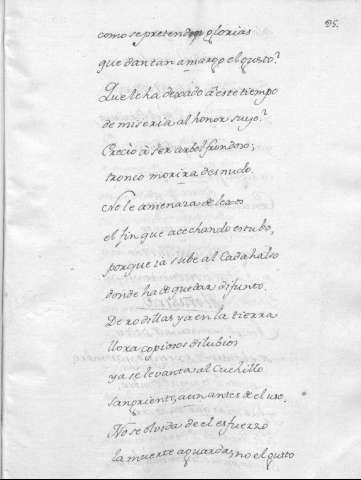 95.
como se pretenden glorias
que dan tan amargo el gusto?
Que le ha dexado à este tiempo
de miseria al honor suyo?
Crecio à ser arbol frondoso,
tronco morira desnudo.
No le amenaza de lexos
el fin que acechando estubo,
porque ia sube al Cadahalso
donde ha de quedar difunto.
De rodillas ya en la tierra
llora copiosos dilubios
ya se levanta, al Cuchillo
sangriento, aun antes de el uso.
No se olvida de el esfuerzo
la muerte aguarda, no el gusto